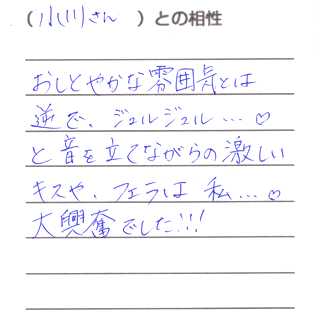 （小川さん　）との相性
おしとやかな雰囲気とは
逆で、ジュルジュル…♡
と音を立てながらの激しい
キスや、フェラは私…♡
大興奮でした!!!